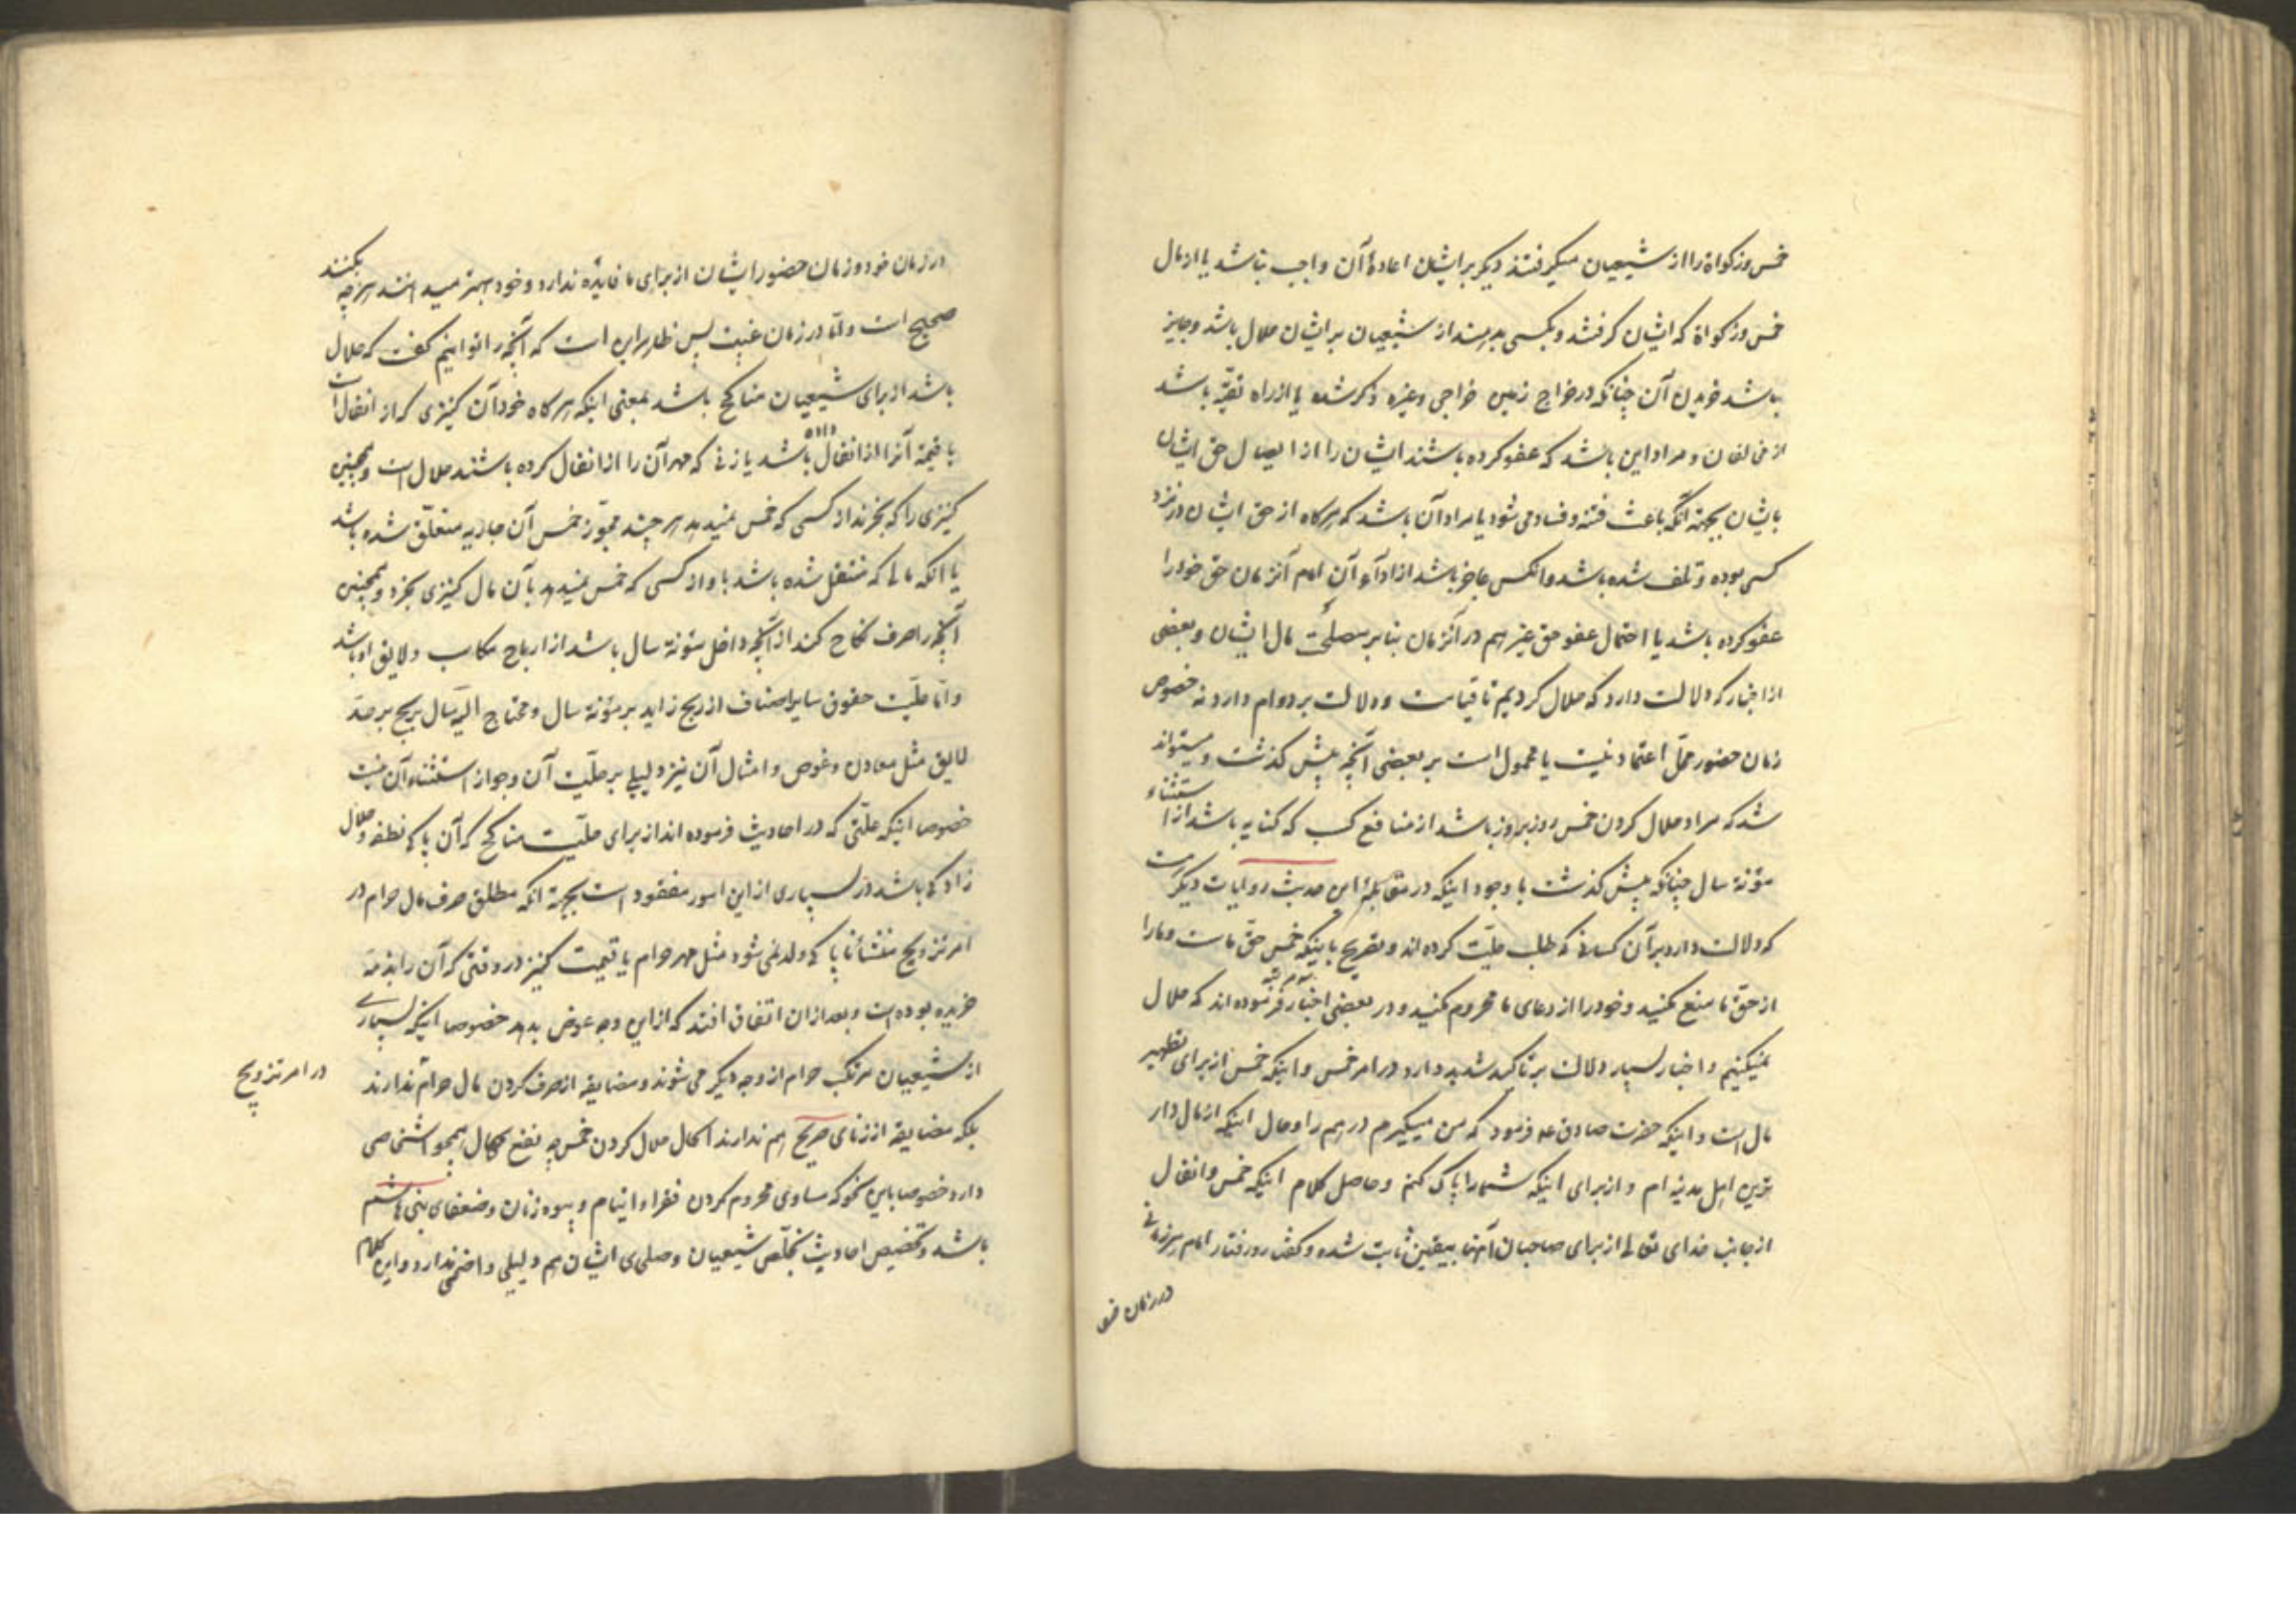 خمس و زکواة را از شیعیان میگرفتند دیگر بر ایشان اعادهٔ آن واجب نباشد یا از مال
خمس و زکواة که ایشان گرفتند و بکسی بدهند از شیعیان بر ایشان حلال باشد و جایز
باشد خریدن آن چنانکه در خراج زمین خراجی وغیره ذکر شده یا از راه تقیّه باشد
از مخالفان و مراد این باشد که عفو کرده باشند ایشان را از ایصال حق ایشان
بایشان بجهة آنکه باعث فتنه و فساد می شود یا مراد آن باشد که هرکاه از حق ایشان در نزد
کسی بوده و تلف شده باشد و انکس عاجز باشد از ادآء آن امام آنزمان حق خود را
عفو کرده باشد یا احتمال عفو حق غیر هم در آنزمان بنا بر مصلحت مال ایشان و بعضی
از اخبار که دلالت دارد که حلال کردیم تا قیامت و دلالت بر دوام دارد نه خصوص
زمان حضور محلّ اعتماد نیست یا محمول است بر بعضی آنچه پیش کذشت و میتواند
شد که مراد حلال کردن خمس روز بروز باشد از منافع کسب که کنایه باشد از استثناء
مؤنهٔ سال چنانکه پیش کذشت با وجود اینکه در مقابله این حدیث روایات دیگر است
که دلالت دارد بر آن کسانی که طلب حلیّت کرده اند و تصریح باینکه خمس حقّ ماست و ما را
از حقّ ما منع مکنید و خود را از دعای ما محروم مکنید و در بعضی اخبار فرموده اند که حلال
نمیکنیم و اخبار بسیار دلالت بر تاکید شدید دارد در امر خمس و اینکه خمس از برای تطهیر
مال است و اینکه حضرت صادق عه فرمود که من میگیرم درهم را و حال اینکه از مال دار
ترین اهل مدینه ام و از برای اینکه شما را پاک کنم و حاصل کلام اینکه خمس و انفال
از جانب خدای تعالی از برای صاحبان آنها بیقین ثابت شده و کفش رو رفتار امام هر زمانی
در زمان خود
در زمان خود و زمان حضور ایشان از برای ما فایده ندارد و خود بهتر میدانند هر چه بکنند
صحیح است و امّا در زمان غیبت پس ظاهر این است که آنچه را توانیم کفت که حلال
باشد از برای شیعیان مناکح باشد بمعنی اینکه هرکاه خود آن کنیزی که از انفال است
یا قیمة آنرا از انفال داده باشد یا زنی که مهر آن را از انفال کرده باشند حلال است و همچنین
کنیزی را که بخرند از کسی که خمس نمیدهد هر چند مجوّز خمس آن جاریه متعلّق شده باشد
یا آنکه مالی که منتقل شده باشد باو از کسی که خمس نمیدهد بآن مال کنیزی بخرد و همچنین
آنچه را صرف نکاح کند از آنچه داخل مؤنهٔ سال باشد از ارباح مکاسب و لایق او باشد
و امّا حلیّت حقوق سایر اصناف از ربح زاید بر مؤنهٔ سال و محتاج الیه سال بربح بر حدّ
لایق مثل معادن و غوص و امثال آن نیز دلیلی بر حلیّت آن و جواز استثناء آن نیست
خصوصا اینکه علّتی که در احادیث فرموده اند از برای حلیّت مناکح که آن پاکی نطفه و حلال
زادکی باشد در بسیاری از این امور مفقود است بجهة انکه مطلق صرف مال حرام در
امر تزویج منشأ ناپاکی ولد نمی شود مثل مهر حرام یا قیمت کنیز در وقتی که آن را بذمّه
خریده بوده است و بعد از ان اتفاق افتد که از این وجه عوض بدهد خصوصا اینکه بسیاری
از شیعیان مرتکب حرام از وجه دیگر می شوند و مضایقه از صرف کردن مال حرام ندارند
در امر تزویج
بلکه مضایقه از زنای صریح هم ندارند اکحال حلال کردن خمس چه نفع بحال همچو اشخاصی
دارد خصوصا باین نحو که مساوی محروم کردن فقراء و ایتام و بیوه زنان و ضعفای بنی هاشم
باشد و تخصیص احادیث بخلّص شیعیان و صلحای ایشان هم دلیلی واضحی ندارد و این کلام